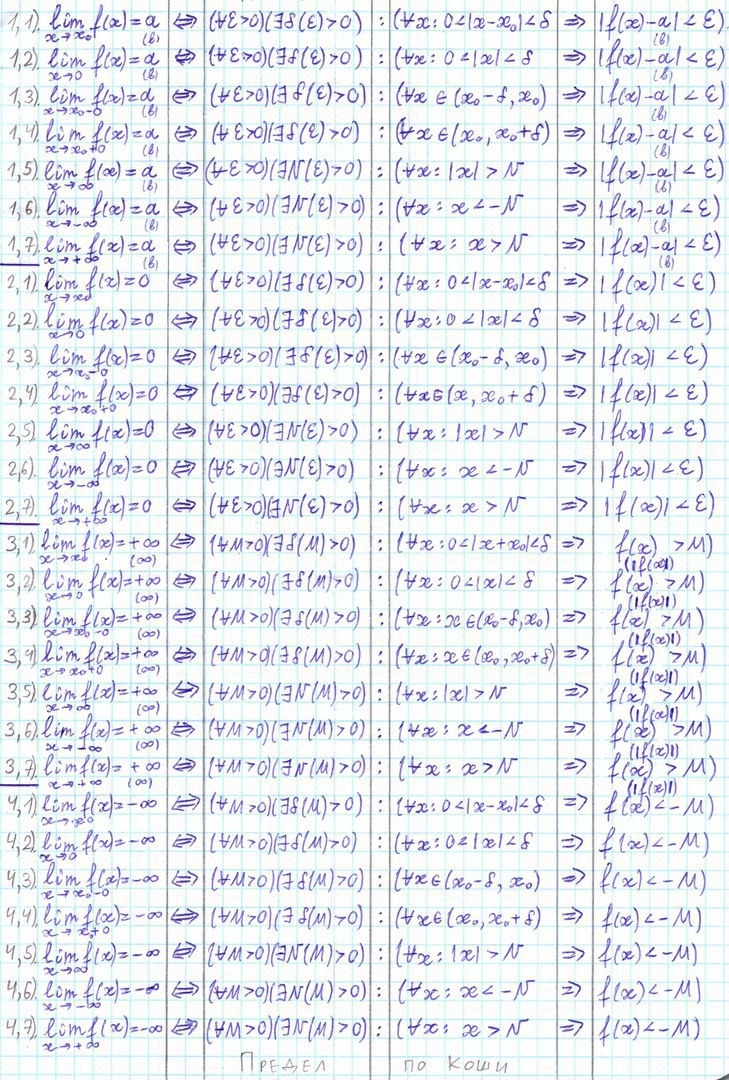 1,1) lim x→x₀ f(x)=a (b) ⇔ (∀ε>0)(∃δ(ε)>0) : (∀x: 0<|x-x₀|<δ ⇒ |f(x)-a|<ε) (b)
1,2) lim x→0 f(x)=a (b) ⇔ (∀ε>0)(∃δ(ε)>0) : (∀x: 0<|x|<δ ⇒ |f(x)-a|<ε) (b)
1,3) lim x→x₀-0 f(x)=a (b) ⇔ (∀ε>0)(∃δ(ε)>0) : (∀x∈(x₀-δ, x₀) ⇒ |f(x)-a|<ε) (b)
1,4) lim x→x₀+0 f(x)=a (b) ⇔ (∀ε>0)(∃δ(ε)>0) : (∀x∈(x₀, x₀+δ) ⇒ |f(x)-a|<ε) (b)
1,5) lim x→∞ f(x)=a (b) ⇔ (∀ε>0)(∃N(ε)>0) : (∀x: |x|>N ⇒ |f(x)-a|<ε) (b)
1,6) lim x→-∞ f(x)=a (b) ⇔ (∀ε>0)(∃N(ε)>0) : (∀x: x<-N ⇒ |f(x)-a|<ε) (b)
1,7) lim x→+∞ f(x)=a (b) ⇔ (∀ε>0)(∃N(ε)>0) : (∀x: x>N ⇒ |f(x)-a|<ε) (b)
2,1) lim x→x₀ f(x)=0 ⇔ (∀ε>0)(∃δ(ε)>0) : (∀x: 0<|x-x₀|<δ ⇒ |f(x)|<ε)
2,2) lim x→0 f(x)=0 ⇔ (∀ε>0)(∃δ(ε)>0) : (∀x: 0<|x|<δ ⇒ |f(x)|<ε)
2,3) lim x→x₀-0 f(x)=0 ⇔ (∀ε>0)(∃δ(ε)>0) : (∀x∈(x₀-δ, x₀) ⇒ |f(x)|<ε)
2,4) lim x→x₀+0 f(x)=0 ⇔ (∀ε>0)(∃δ(ε)>0) : (∀x∈(x, x₀+δ) ⇒ |f(x)|<ε)
2,5) lim x→∞ f(x)=0 ⇔ (∀ε>0)(∃N(ε)>0) : (∀x: |x|>N ⇒ |f(x)|<ε)
2,6) lim x→-∞ f(x)=0 ⇔ (∀ε>0)(∃N(ε)>0) : (∀x: x<-N ⇒ |f(x)|<ε)
2,7) lim x→+∞ f(x)=0 ⇔ (∀ε>0)(∃N(ε)>0) : (∀x: x>N ⇒ |f(x)|<ε)
3,1) lim x→x₀ f(x)=+∞ (∞) ⇔ (∀M>0)(∃δ(M)>0) : (∀x: 0<|x+x₀|<δ ⇒ f(x)>M) (|f(x)|)
3,2) lim x→0 f(x)=+∞ (∞) ⇔ (∀M>0)(∃δ(M)>0) : (∀x: 0<|x|<δ ⇒ f(x)>M) (|f(x)|)
3,3) lim x→x₀-0 f(x)=+∞ (∞) ⇔ (∀M>0)(∃δ(M)>0) : (∀x: x∈(x₀-δ, x₀) ⇒ f(x)>M) (|f(x)|)
3,4) lim x→x₀+0 f(x)=+∞ (∞) ⇔ (∀M>0)(∃δ(M)>0) : (∀x: x∈(x₀, x₀+δ) ⇒ f(x)>M) (|f(x)|)
3,5) lim x→∞ f(x)=+∞ (∞) ⇔ (∀M>0)(∃N(M)>0) : (∀x: |x|>N ⇒ f(x)>M) (|f(x)|)
3,6) lim x→-∞ f(x)=+∞ (∞) ⇔ (∀M>0)(∃N(M)>0) : (∀x: x<-N ⇒ f(x)>M) (|f(x)|)
3,7) lim x→+∞ f(x)=+∞ (∞) ⇔ (∀M>0)(∃N(M)>0) : (∀x: x>N ⇒ f(x)>M) (|f(x)|)
4,1) lim x→x₀ f(x)=-∞ ⇔ (∀M>0)(∃δ(M)>0) : (∀x: 0<|x-x₀|<δ ⇒ f(x)<-M)
4,2) lim x→0 f(x)=-∞ ⇔ (∀M>0)(∃δ(M)>0) : (∀x: 0<|x|<δ ⇒ f(x)<-M)
4,3) lim x→x₀-0 f(x)=-∞ ⇔ (∀M>0)(∃δ(M)>0) : (∀x∈(x₀-δ, x₀) ⇒ f(x)<-M)
4,4) lim x→x₀+0 f(x)=-∞ ⇔ (∀M>0)(∃δ(M)>0) : (∀x∈(x₀, x₀+δ) ⇒ f(x)<-M)
4,5) lim x→∞ f(x)=-∞ ⇔ (∀M>0)(∃N(M)>0) : (∀x: |x|>N ⇒ f(x)<-M)
4,6) lim x→-∞ f(x)=-∞ ⇔ (∀M>0)(∃N(M)>0) : (∀x: x<-N ⇒ f(x)<-M)
4,7) lim x→+∞ f(x)=-∞ ⇔ (∀M>0)(∃N(M)>0) : (∀x: x>N ⇒ f(x)<-M)
Предел по Коши